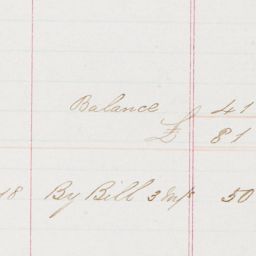 Balance 41
£ 81
18 By Bill 3 m/s 50